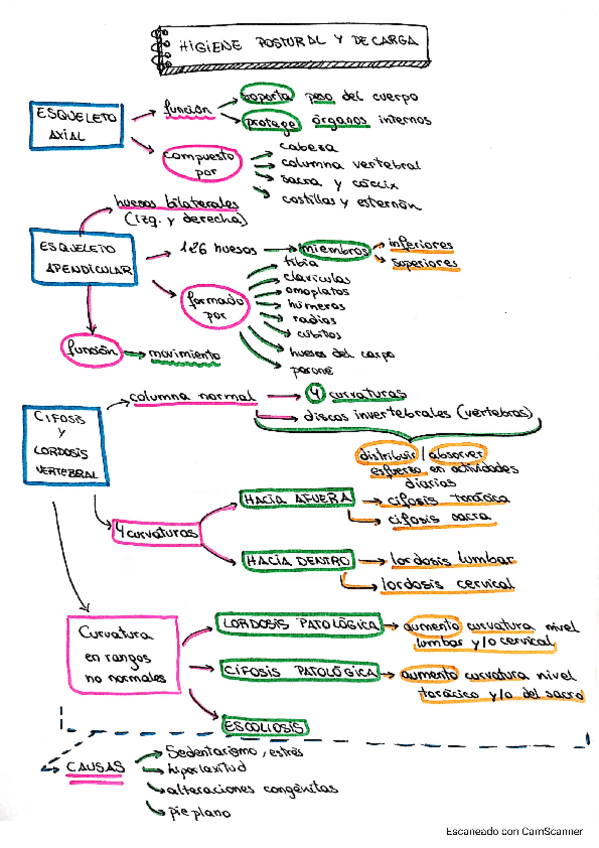 HIGIENE POSTURAL Y DE CARGA
ESQUELETO
AXIAL
función
soporta peso del cuerpo
protege órganos internos
compuesto
por
cabeza
columna vertebral
sacra y cóccix
costillas y esternón
huesos bilaterales
(izq. y derecha)
ESQUELETO
APENDICULAR
126 huesos
miembros
inferiores
superiores
formado
por
tibia
clavículas
omoplatos
húmeros
radios
cúbitos
huesos del carpo
peroné
función
movimiento
CIFOSIS
Y
LORDOSIS
VERTEBRAL
columna normal
4 curvaturas
discos invertebrales (vértebras)
distribuir / absorver
esfuerzo en actividades
diarias
4 curvaturas
HACIA AFUERA
cifosis torácica
cifosis sacra
HACIA DENTRO
lordosis lumbar
lordosis cervical
Curvatura
en rangos
no normales
LORDOSIS PATOLÓGICA
aumento curvatura nivel
lumbar y/o cervical
CIFOSIS PATOLÓGICA
aumento curvatura nivel
torácico y/o del sacro
ESCOLIOSIS
CAUSAS
Sedentarismo, estrés
hiperlaxitud
alteraciones congénitas
pie plano
Escaneado con CamScanner